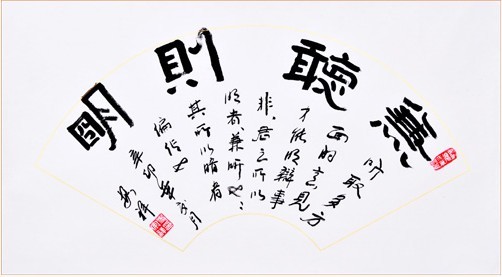 兼聽則明
听取多方
面的意见
才能明辩事
非，君之所以
明者兼听也；
其所以暗者
偏信也
辛卯年